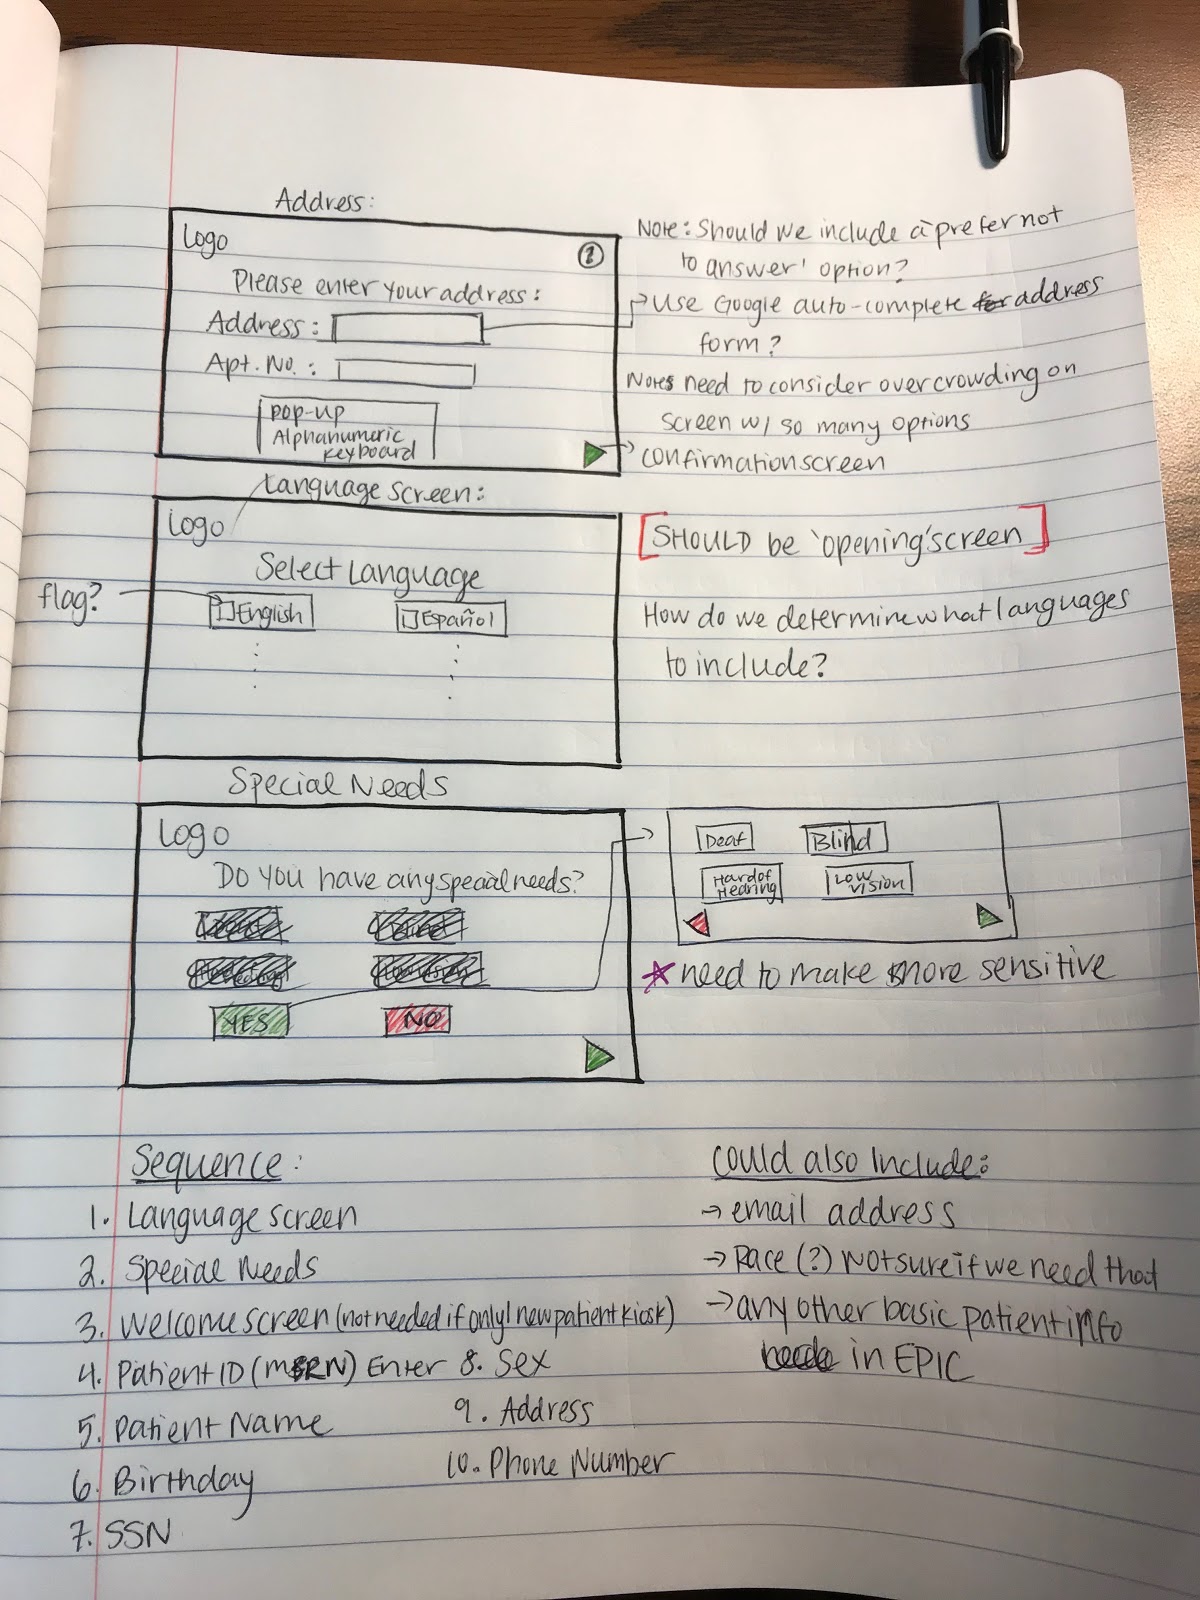 Address:
Logo
?
Please enter your address:
Address:
Apt. No.:
pop-up
Alphanumeric
keyboard
Note: Should we include a 'prefer not
to answer' option?
→ Use Google auto-complete address
form?
Notes need to consider overcrowding on
screen w/ so many options
→ confirmation screen
Language screen:
Logo
Select Language
flag?
English
Español
[SHOULD be 'opening' screen]
How do we determine what languages
to include?
Special Needs
Logo
Do you have any special needs?
YES
NO
Deaf
Blind
Hard of
Hearing
Low
Vision
* need to make more sensitive
Sequence:
1. Language screen
2. Special Needs
3. Welcome screen (not needed if only 1 new patient kiosk)
4. Patient ID (MRN) Enter
5. Patient Name
6. Birthday
7. SSN
8. Sex
9. Address
10. Phone Number
could also include:
→ email address
→ Race (?) Not sure if we need that
→ any other basic patient info
in EPIC